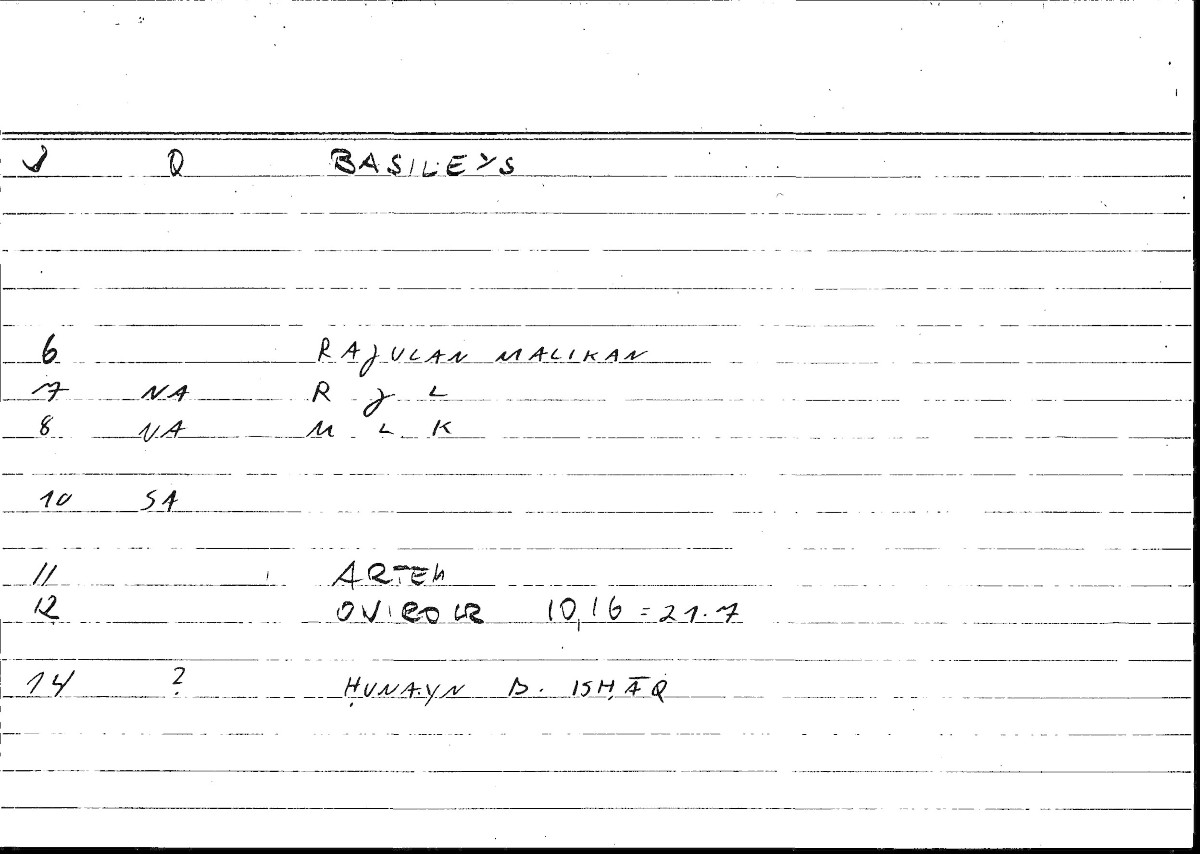 Q BASILEYS
6 RAJULAN MALIKAN
7 NA R J L
8 NA M L K
10 SA
11 ARTEM
12 ONIROCR 10,16 = 21.7
14 ? ḤUNAYN B. ISḤĀQ